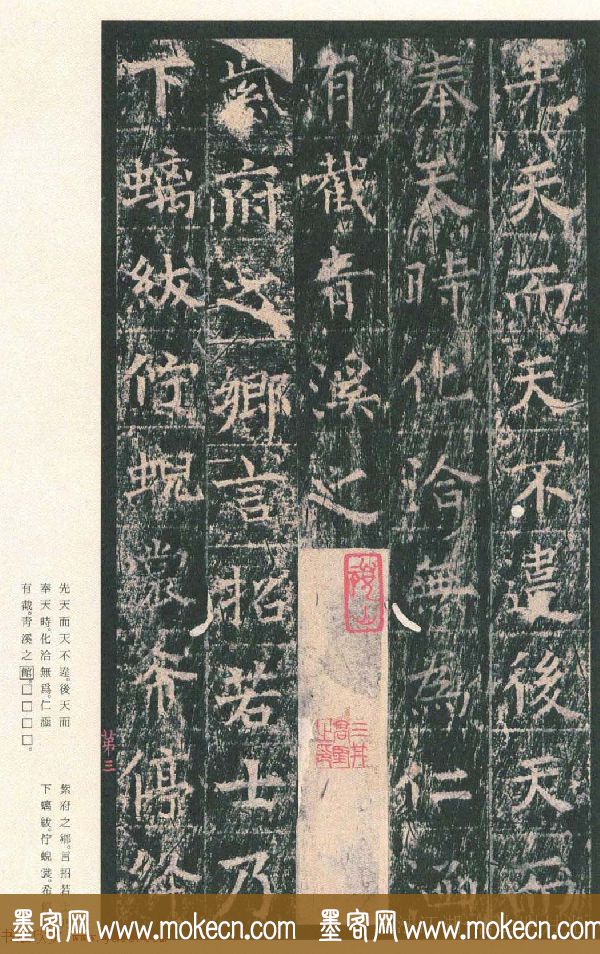 先天而天不違後天而
奉天時化洽無為仁涵
有截青溪之
紫府之鄉言招若士乃
下螭紱佇蜺裳希停
第三
先天而天不違。後天而
奉天時。化洽無爲。仁涵
有截。青溪之館。□□□□。
紫府之鄉。言招若
下螭紱。佇蜺裳。希
墨客网 www.mokecn.com 墨客网 www.mokecn.com